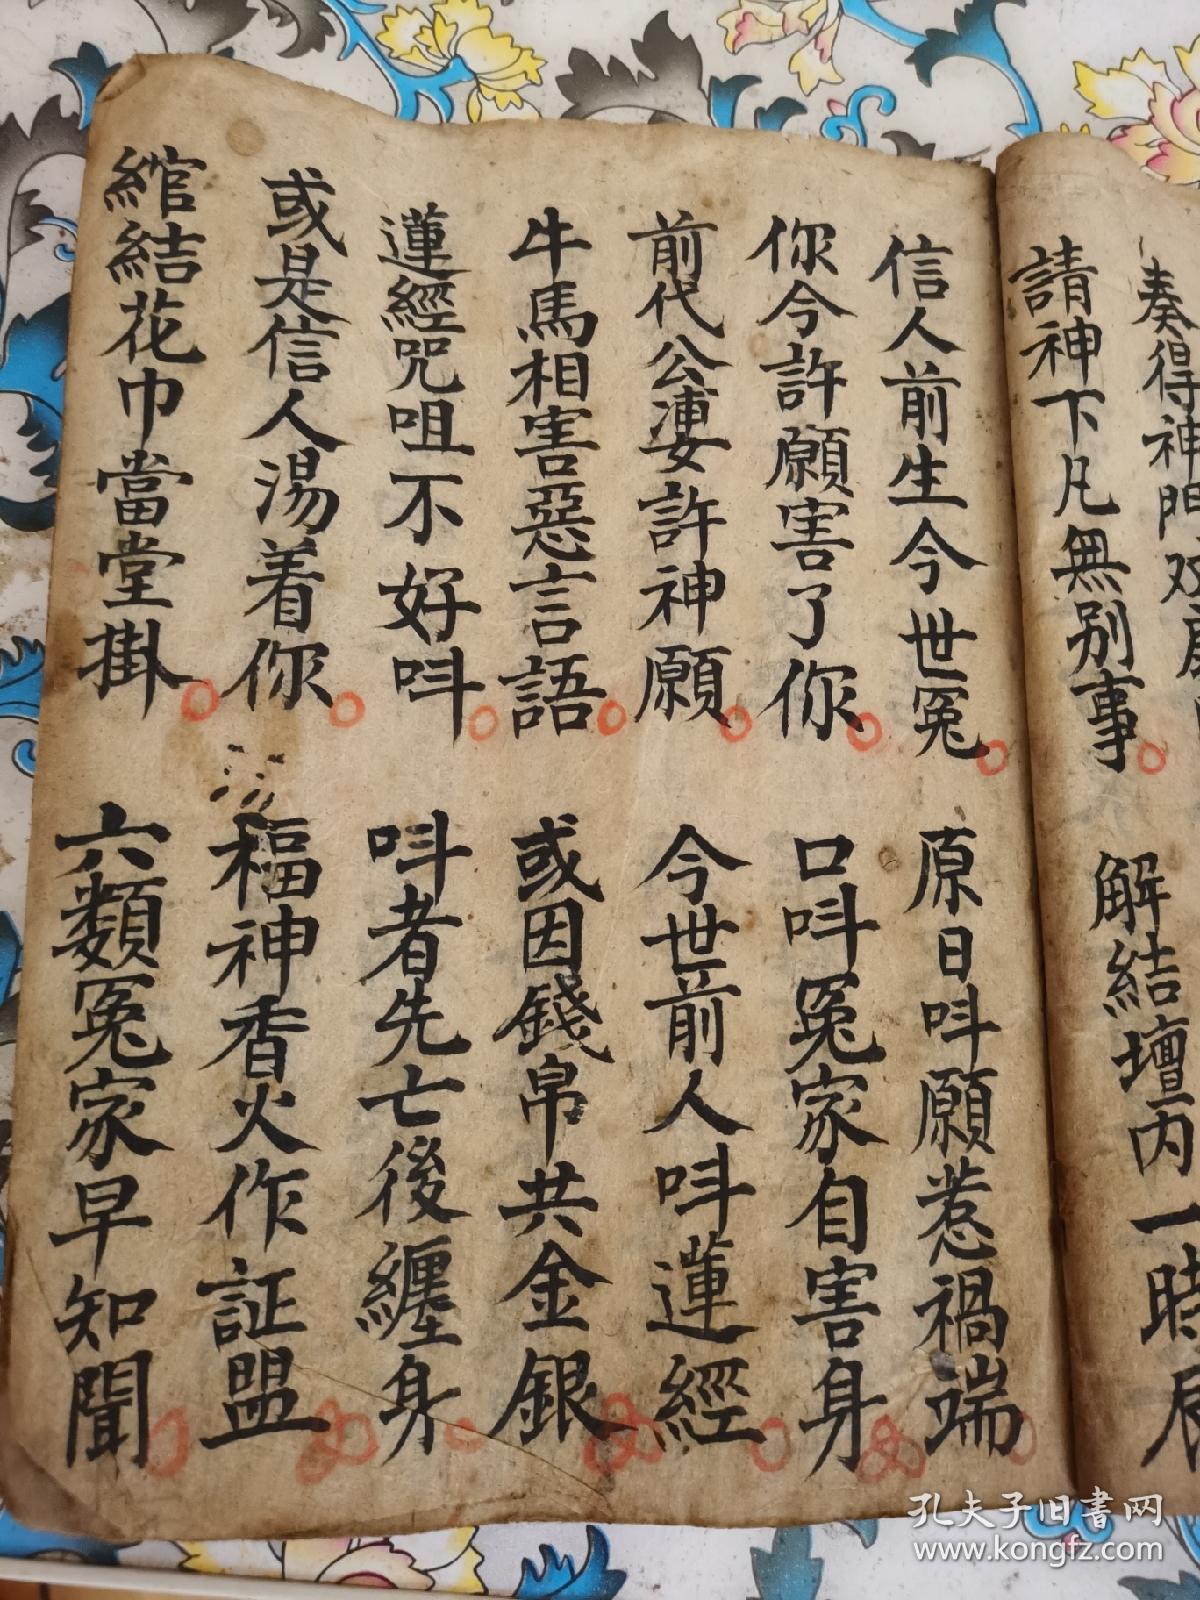 奏得神門
請神下凡無別事 解結壇内一時辰
信人前生今世冤 原日呌願惹禍端
你今許願害了你 口呌冤家自害身
前代公婆許神願 今世前人呌蓮經
牛馬相害惡言語 或因錢帛共金銀
蓮經咒咀不好呌 呌者先亡後纏身
或是信人湯着你 福神香火作証盟
綰結花巾當堂掛 六類冤家早知聞
孔夫子旧書网
www.kongfz.com